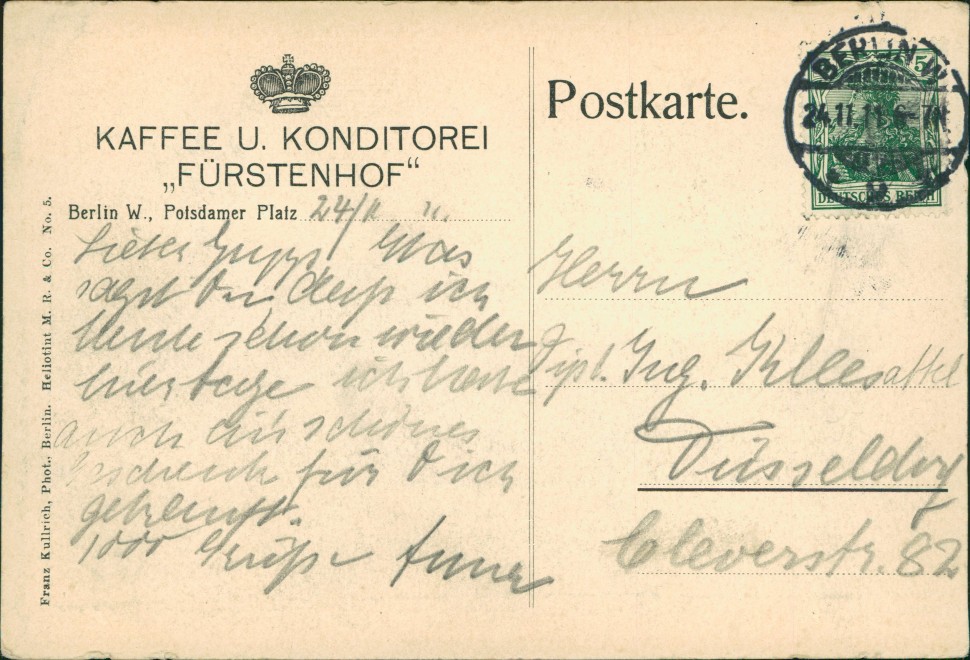 KAFFEE U. KONDITOREI
„FÜRSTENHOF“
Berlin W., Potsdamer Platz 24/11 11.
Lieber
Was
sagst Du, dass ich
heute schon wieder
ich habe
auch ein schönes
für Dich
gekauft.
1000 Grüße Anna
Franz Kullrich, Phot., Berlin. Heliotint M. R. & Co. No. 5.
Postkarte.
BERLIN W
24.11.11.6-7N
5
DEUTSCHES REICH
Herrn
Dipl. Ing.
Düsseldorf
Cleverstr. 82